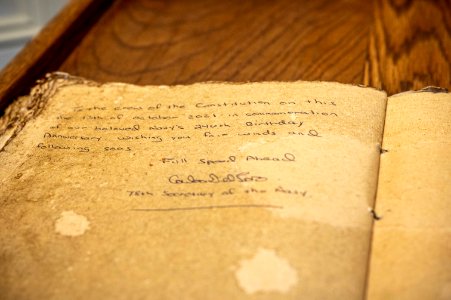 To the crew of the Constitution on this
the 13th of October 2021 in commemoration
of our beloved Navy's 246th Birthday
Anniversary. Wishing you fair winds and
following seas
Full Speed Ahead
78th Secretary of the Navy